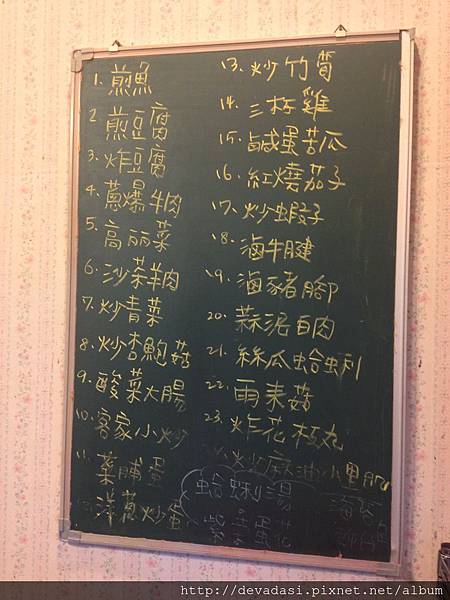 1. 煎魚
2. 煎豆腐
3. 炸豆腐
4. 蔥爆牛肉
5. 高丽菜
6. 沙茶羊肉
7. 炒青菜
8. 炒杏鮑菇
9. 酸菜大腸
10. 客家小炒
11. 菜脯蛋
12. 洋蔥炒蛋
13. 炒竹筍
14. 三杯雞
15. 鹹蛋苦瓜
16. 紅燒茄子
17. 炒蝦子
18. 滷牛腱
19. 滷豬腳
20. 蒜泥白肉
21. 絲瓜蛤蜊
22. 雨來菇
23. 炸花枝丸
麻油小里肌
蛤蜊湯
紫菜蛋花
http://devadasi.pixnet.net/album